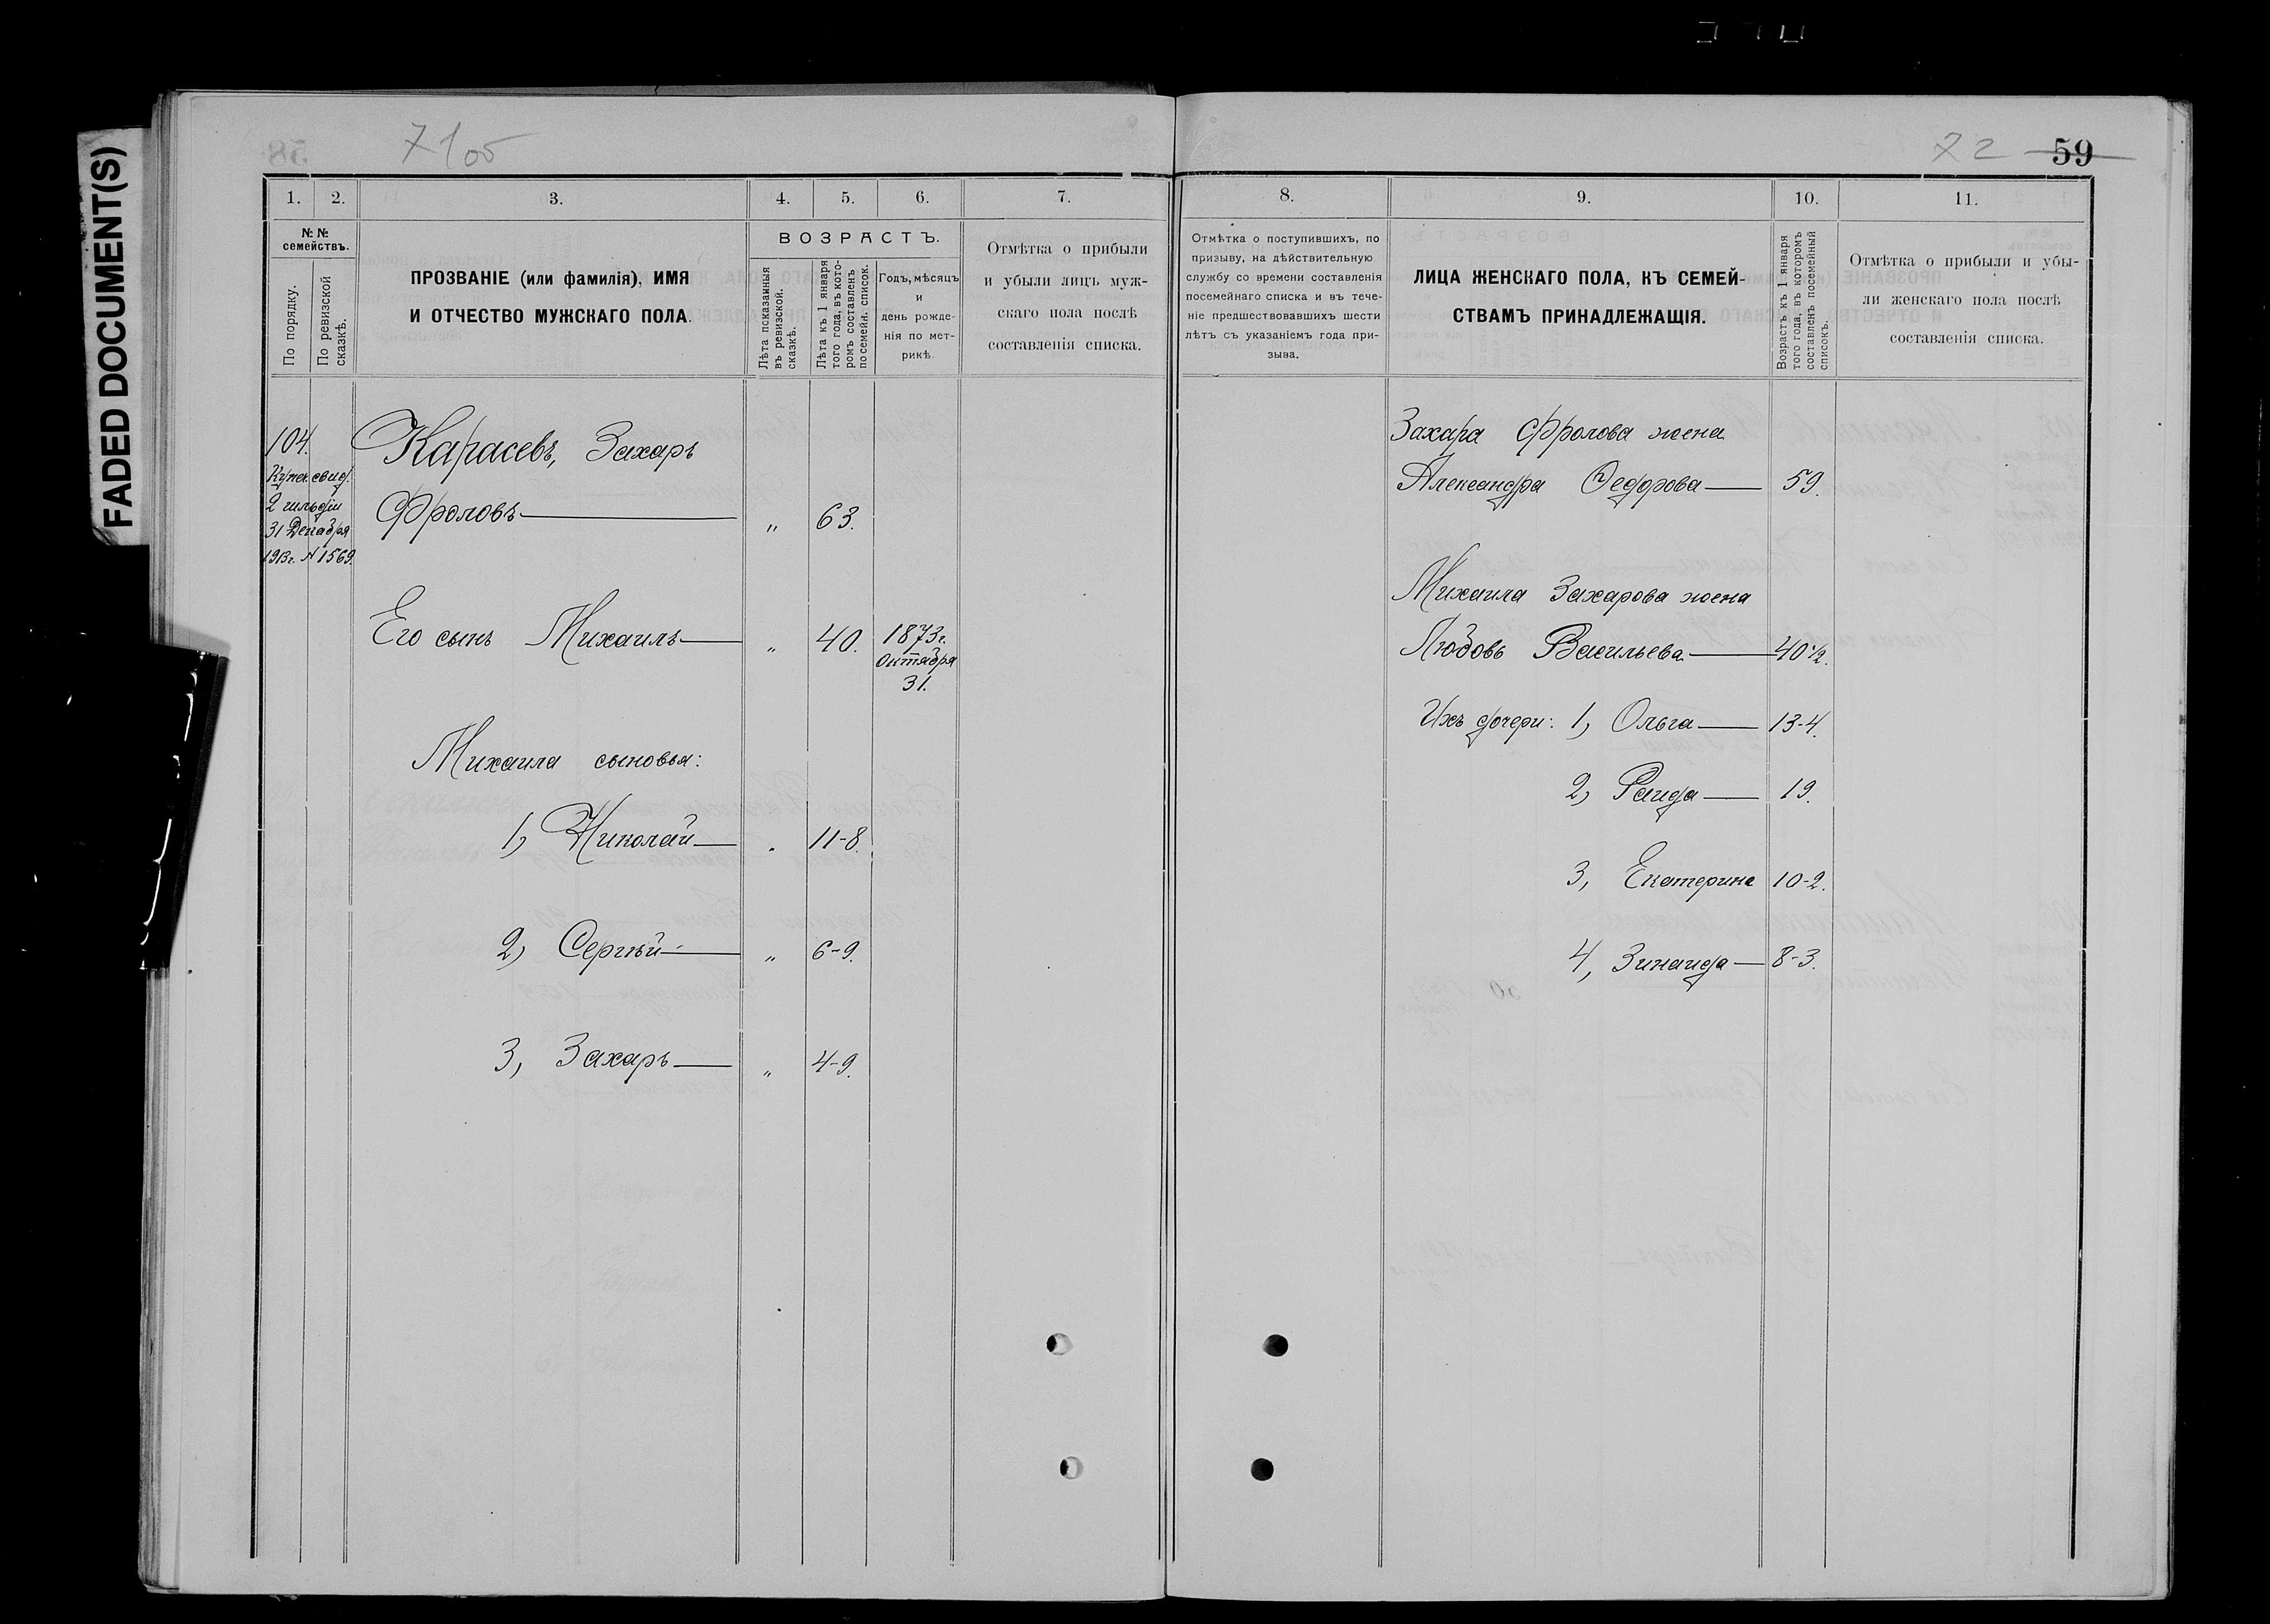 FADED DOCUMENT(S)
71об
1. 2. 3. 4. 5. 6. 7.
№ №
семействъ.
По порядку.
По ревизской
сказкѣ.
ПРОЗВАНІЕ (или фамилія), ИМЯ
И ОТЧЕСТВО МУЖСКАГО ПОЛА.
ВОЗРАСТЪ.
Лѣта показанныя
въ ревизской.
сказкѣ.
Лѣта къ 1 января
того года, въ кото-
ромъ составленъ
посемейн. список.
Годъ, мѣсяцъ
и
день рожде-
нія по мет-
рикѣ.
Отмѣтка о прибыли
и убыли лицъ муж-
скаго пола послѣ
составленія списка.
104.
Купеч. свид.
2 гильдіи
31 Декабря
1913г. № 1569.
Карасевъ, Захаръ
Фроловъ — „ 63.
Его сынъ Михаилъ — „ 40. 1873г.
Октября
31.
Михаила сыновья:
1, Николай — „ 11-8.
2, Сергѣй — „ 6-9.
3, Захаръ — „ 4-9.
72 59
8. 9. 10. 11.
Отмѣтка о поступившихъ, по
призыву, на дѣйствительную
службу со времени составленія
посемейнаго списка и въ тече-
ніе предшествовавшихъ шести
лѣтъ съ указаніемъ года при-
зыва.
ЛИЦА ЖЕНСКАГО ПОЛА, КЪ СЕМЕЙ-
СТВАМЪ ПРИНАДЛЕЖАЩІЯ.
Возрастъ къ 1 января
того года, въ которомъ
составленъ посемейный
списокъ.
Отмѣтка о прибыли и убы-
ли женскаго пола послѣ
составленія списка.
Захара Фролова жена
Александра Ѳеодорова — 59.
Михаила Захарова жена
Любовь Васильева — 40½.
Ихъ дочери: 1, Ольга — 13-4.
2, Раида — 19.
3, Екатерина 10-2.
4, Зинаида — 8-3.